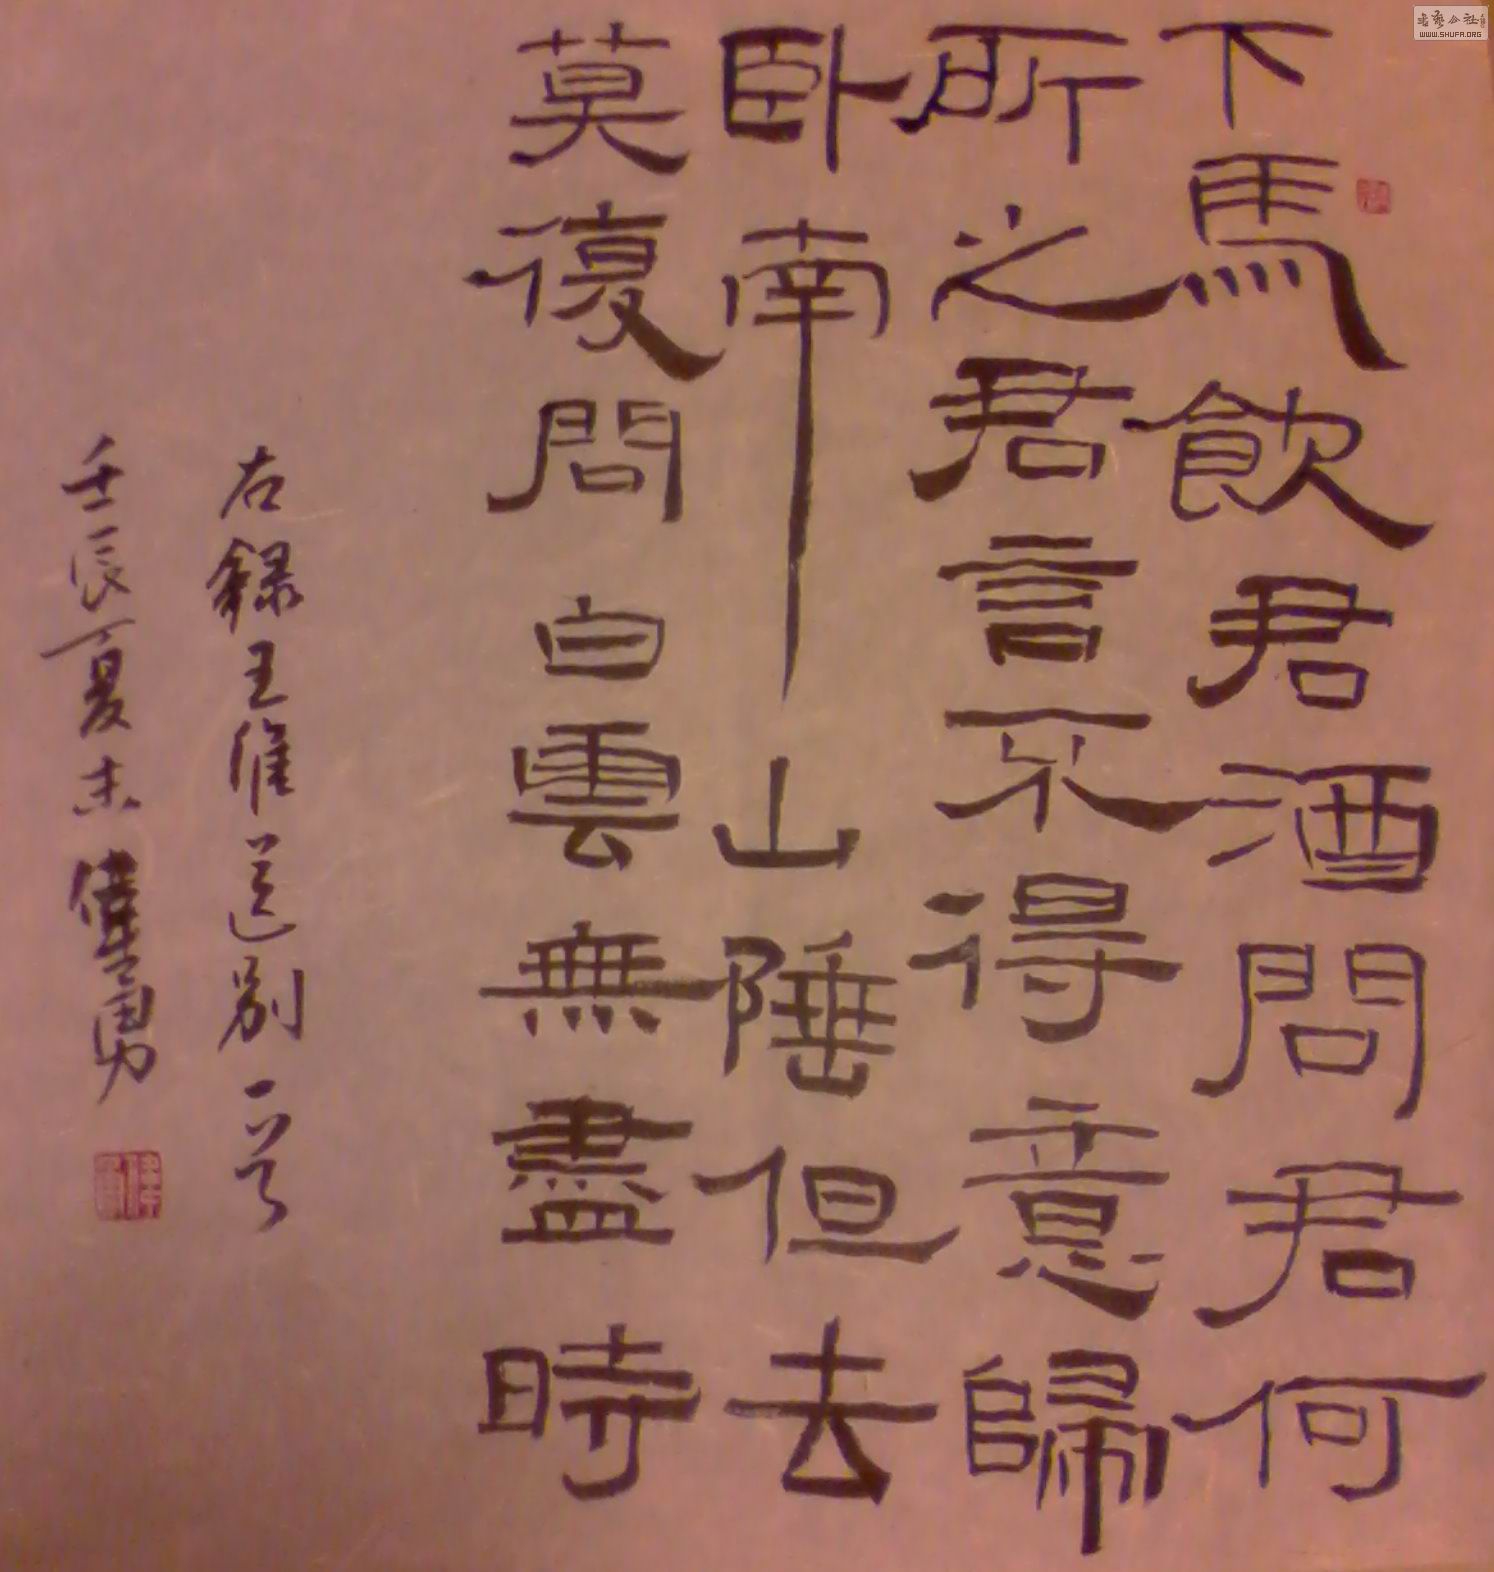 下馬飲君酒問君何
所之君言不得意歸
卧南山陲但去
莫復問白雲無盡時
右録王維送别一首
壬辰夏末偉勇
WWW.SHUFA.ORG